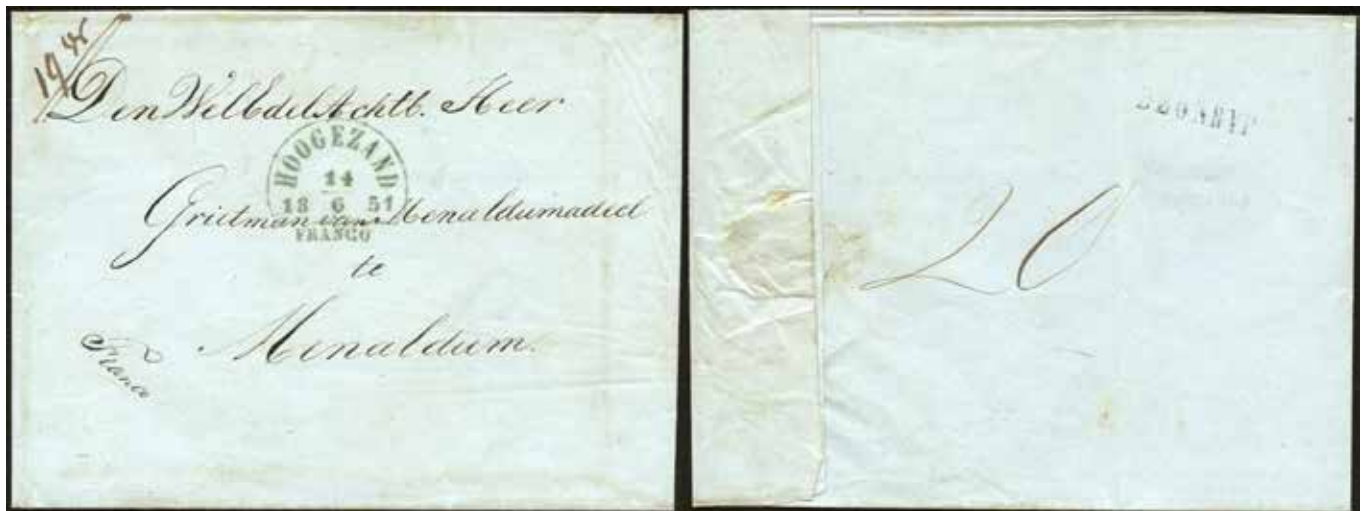 Den WelEdelAchtb. Heer
HOOGEZAND
14
18 6 51
FRANCO
Grietman van Menaldumadeel
te
Menaldum.
Franco
DEONRYP
20